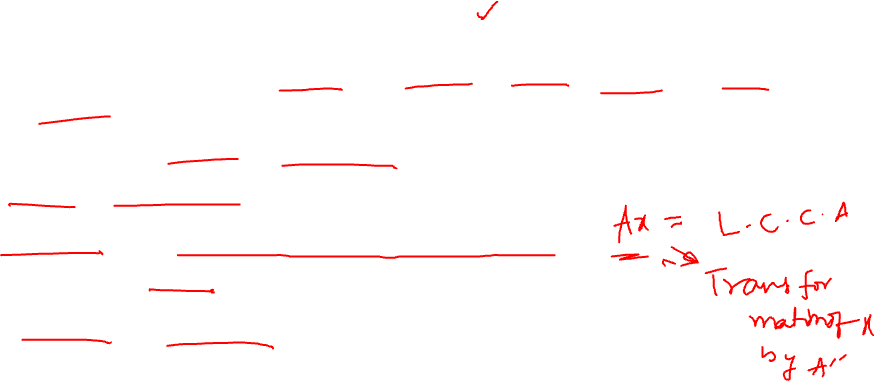 Ax = L.C.C.A
Transfor
mation of x
by A"